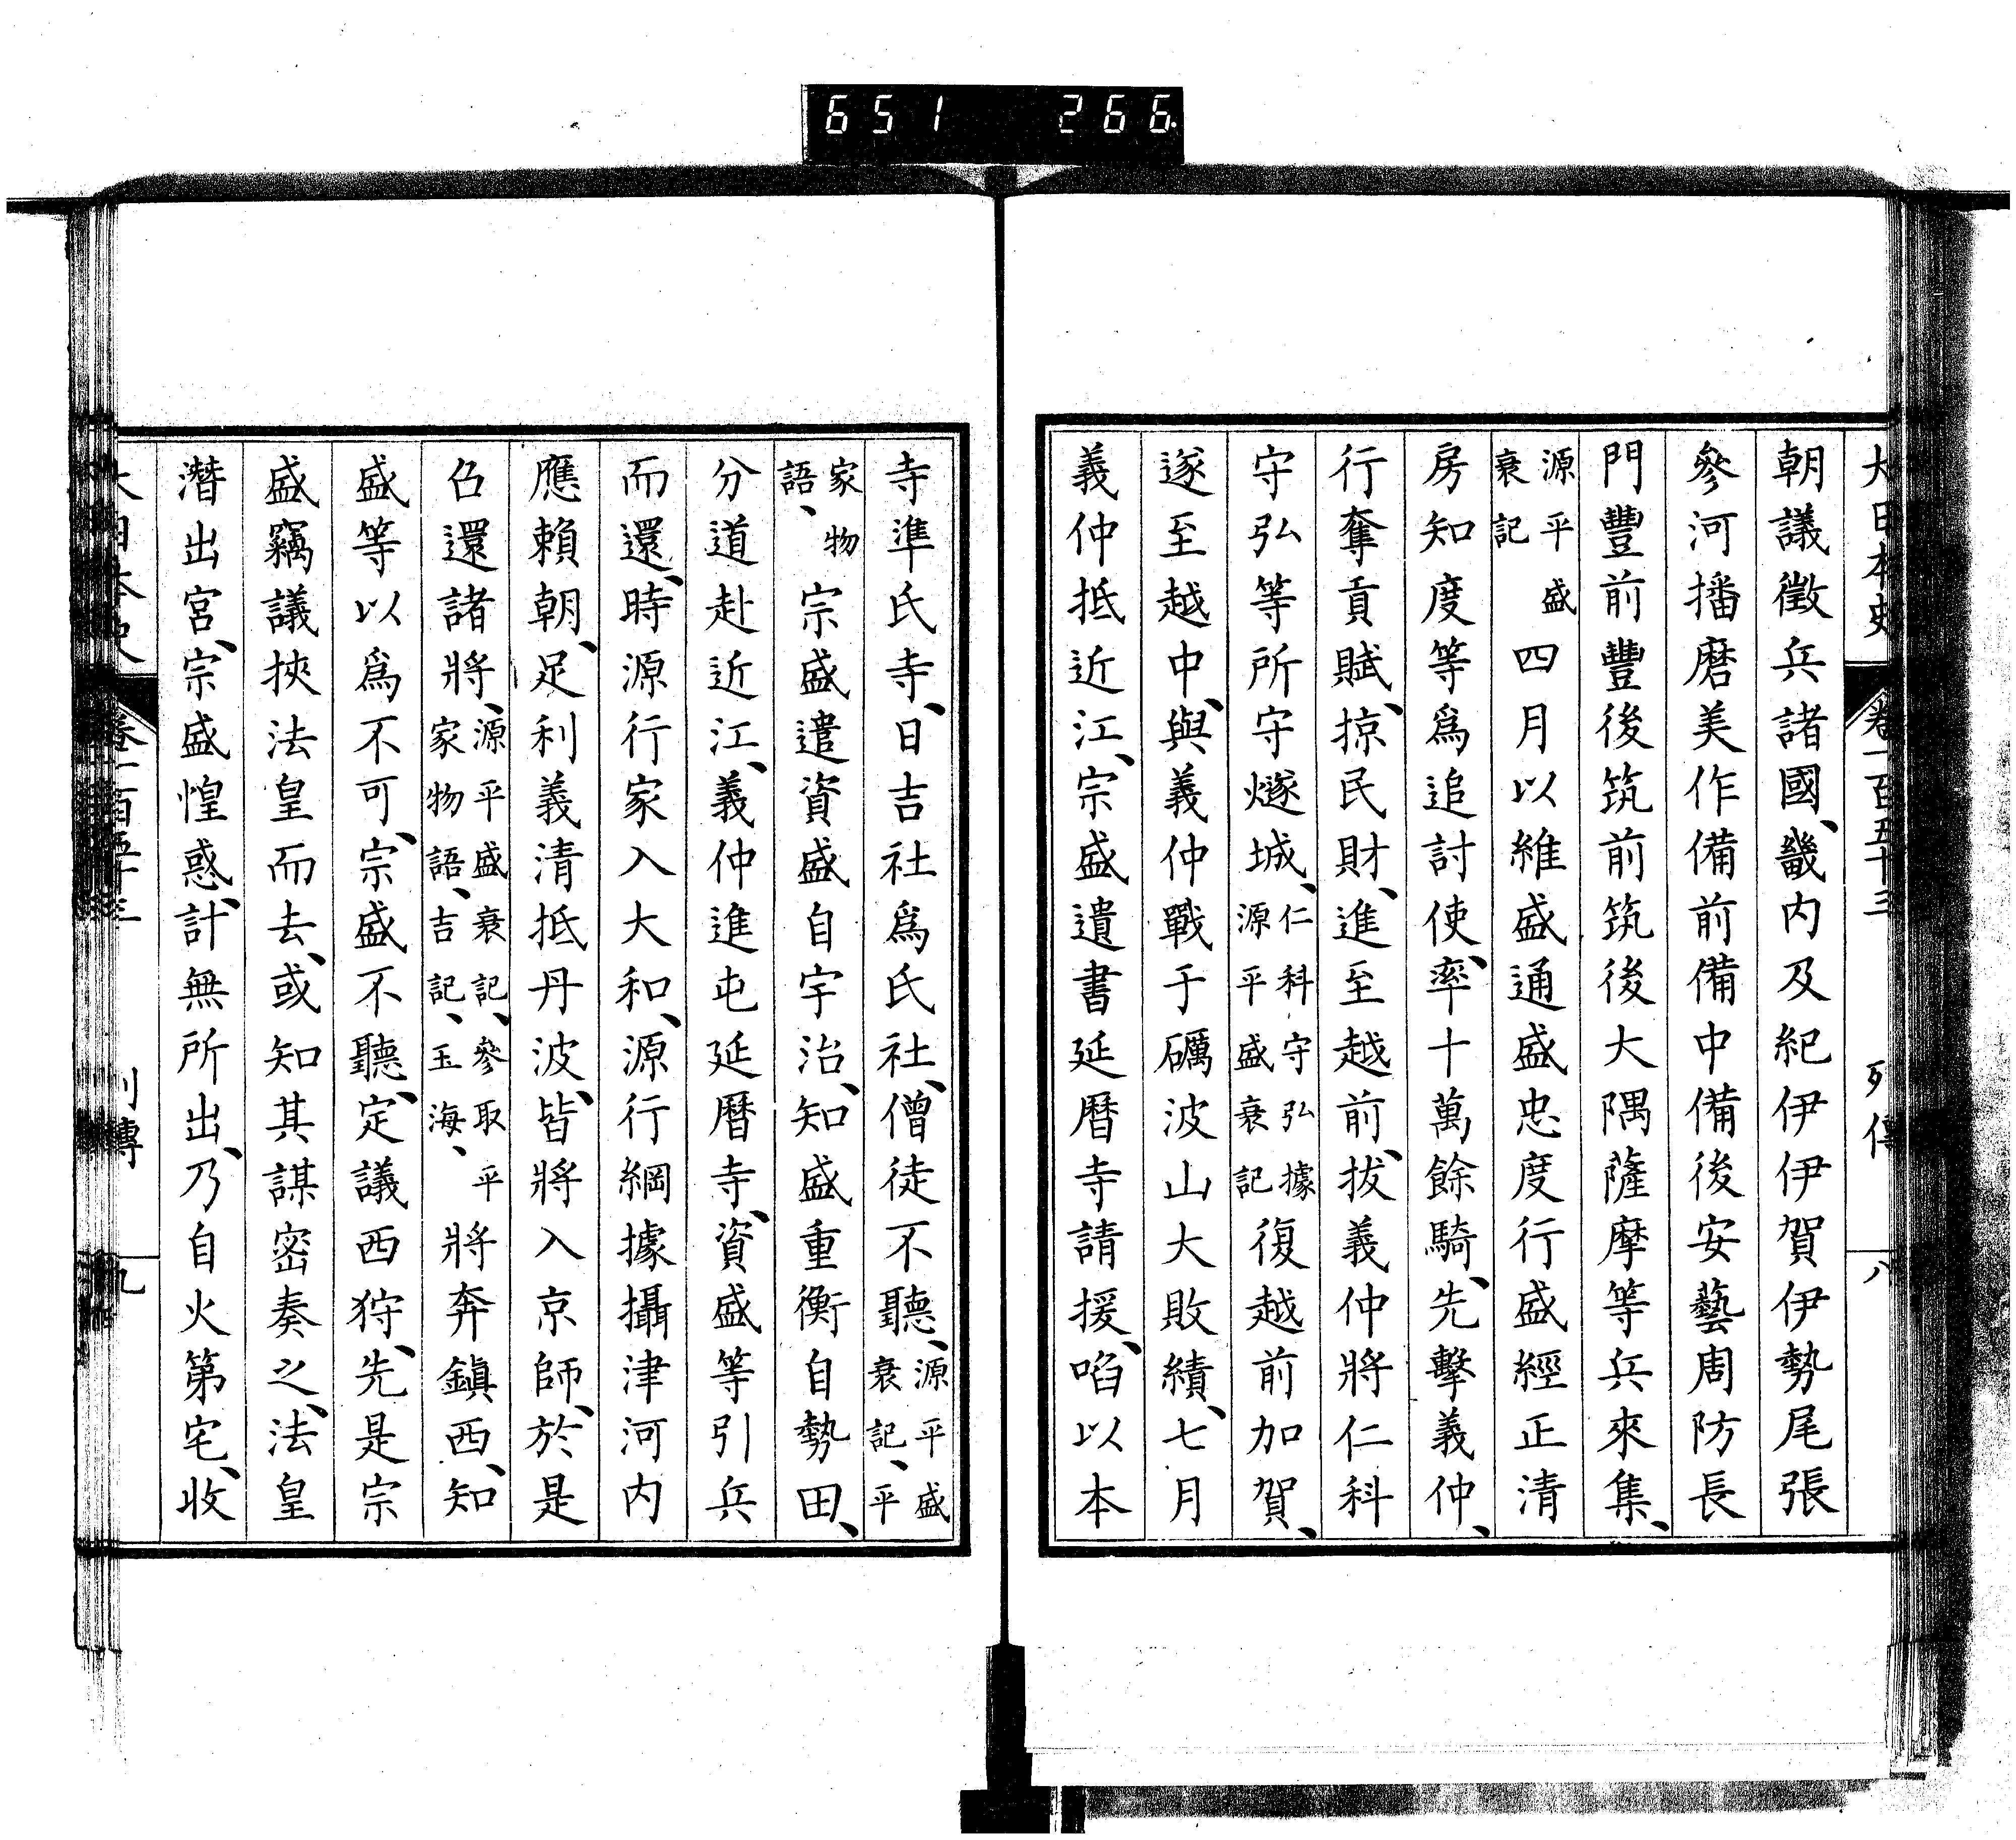 651 266
大日本史 卷一百五十三 列傳 八
朝議徵兵諸國、畿内及紀伊伊賀伊勢尾張
參河播磨美作備前備中備後安藝周防長
門豐前豐後筑前筑後大隅薩摩等兵來集、
源平盛衰記四月以維盛通盛忠度行盛經正清
房知度等爲追討使、率十萬餘騎、先擊義仲、
行奪貢賦、掠民財、進至越前、拔義仲將仁科
守弘等所守燧城、仁科守弘據源平盛衰記復越前加賀、
遂至越中、與義仲戰于礪波山大敗績、七月
義仲抵近江、宗盛遺書延曆寺請援、啗以本
寺準氏寺、日吉社爲氏社、僧徒不聽、源平盛衰記、平
家物語、宗盛遣資盛自宇治、知盛重衡自勢田、
分道赴近江、義仲進屯延曆寺、資盛等引兵
而還、時源行家入大和、源行綱據攝津河内
應賴朝、足利義清抵丹波、皆將入京師、於是
召還諸將、源平盛衰記、參取平家物語、吉記、玉海、將奔鎭西、知
盛等以爲不可、宗盛不聽、定議西狩、先是宗
盛竊議挾法皇而去、或知其謀密奏之、法皇
潛出宮、宗盛惶惑、計無所出、乃自火第宅、收
大日本史 卷一百五十三 列傳 九